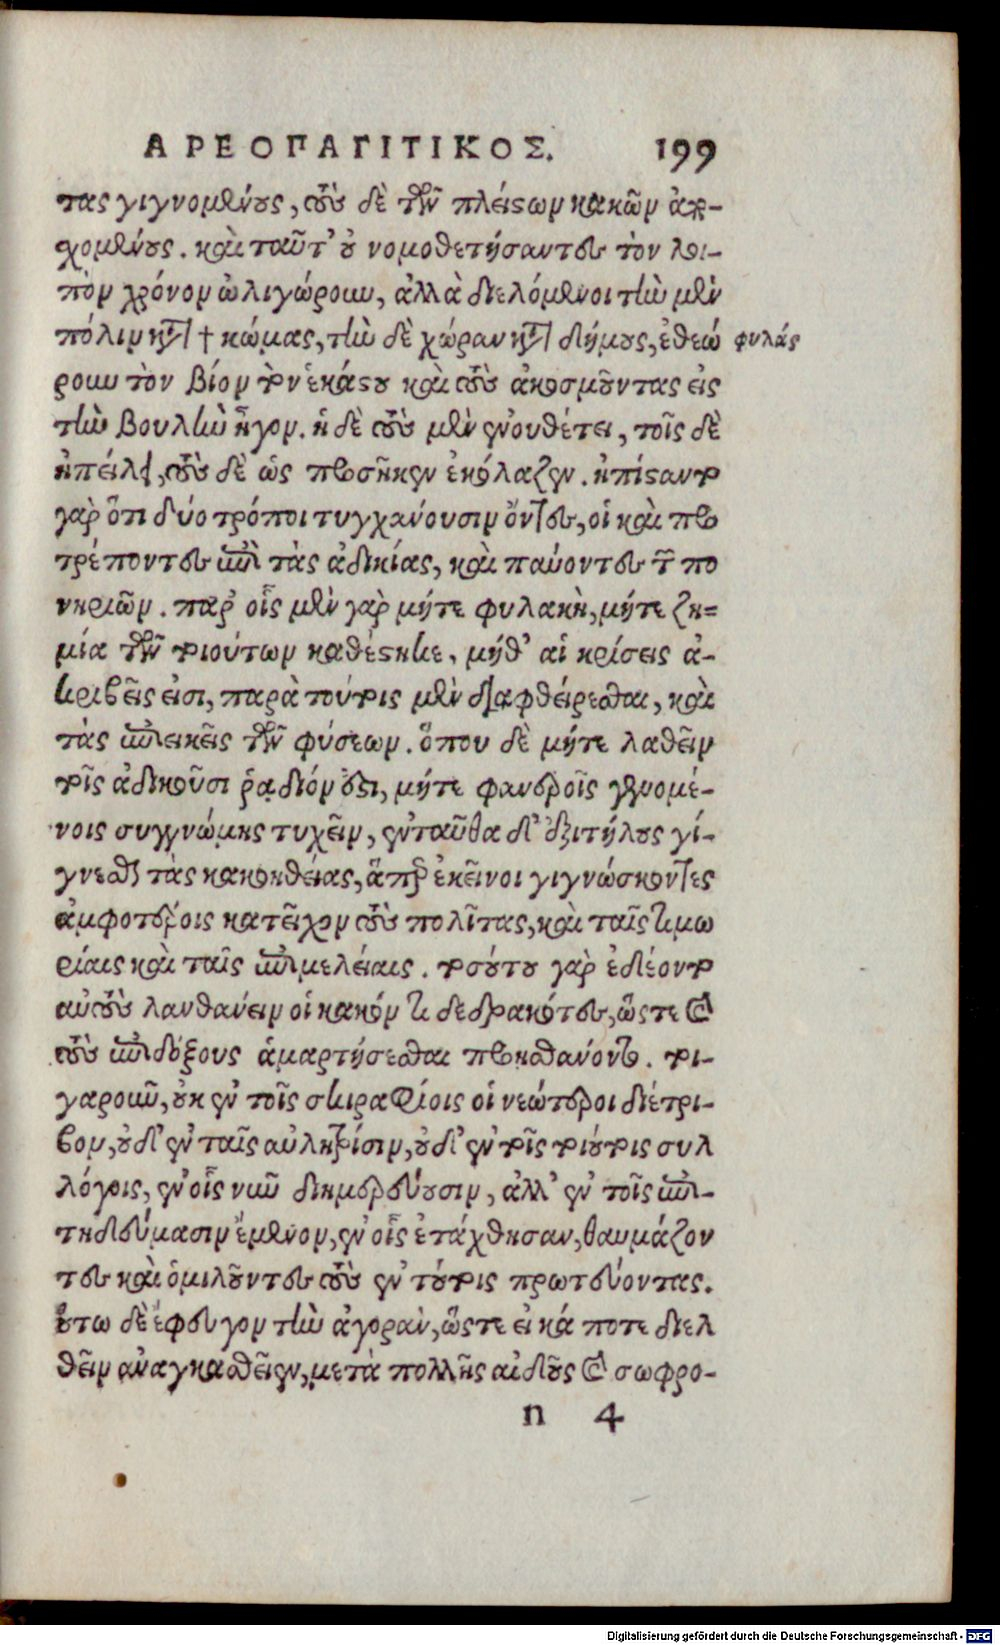 ΑΡΕΟΠΑΓΙΤΙΚΟΣ. 199
τας γιγνομένους, τοὺς δὲ τῶν πλείστων κακῶν ἀρ-
χομένους. καὶ ταῦτ' οὐ νομοθετήσαντες τὸν λοι-
πὸν χρόνον ὠλιγώρουν, ἀλλὰ διελόμενοι τὴν μὲν
πόλιν κατὰ † κώμας, τὴν δὲ χώραν κατὰ δήμους, ἐθεώ φυλάς
ρουν τὸν βίον τὸν ἑκάστου καὶ τοὺς ἀκοσμοῦντας εἰς
τὴν βουλὴν ἦγον. ἡ δὲ τοὺς μὲν ἐνουθέτει, τοῖς δὲ
ἠπείλει, τοὺς δὲ ὡς προσῆκεν ἐκόλαζεν. ἠπίσαντο
γὰρ ὅτι δύο τρόποι τυγχάνουσιν ὄντες, οἱ καὶ προ
τρέποντες ἐπὶ τὰς ἀδικίας, καὶ παύοντες τῶν πο
νηριῶν. παρ' οἷς μὲν γὰρ μήτε φυλακὴ, μήτε ζη=
μία τῶν τοιούτων καθέστηκε, μήθ' αἱ κρίσεις ἀ-
κριβεῖς εἰσι, παρὰ τούτοις μὲν διαφθείρεσθαι, καὶ
τὰς ἐπιεικεῖς τῶν φύσεων. ὅπου δὲ μήτε λαθεῖν
τοῖς ἀδικοῦσι ῥᾴδιόν ἐστι, μήτε φανεροῖς γενομέ-
νοις συγγνώμης τυχεῖν, ἐνταῦθα δ' ἐξιτήλους γί-
γνεσθαι τὰς κακοηθείας, ἅπερ ἐκεῖνοι γιγνώσκοντες
ἀμφοτέροις κατεῖχον τοὺς πολίτας, καὶ ταῖς τιμω
ρίαις καὶ ταῖς ἐπιμελείαις. τοσούτου γὰρ ἐδέοντο
αὐτοὺς λανθάνειν οἱ κακόν τι δεδρακότες, ὥστε καὶ
τοὺς ἐπιδόξους ἁμαρτήσεσθαι προῃσθάνοντο. τοι-
γαροῦν, οὐκ ἐν τοῖς σκιραφίοις οἱ νεώτεροι διέτρι-
βον, οὐδ' ἐν ταῖς αὐλητρίσιν, οὐδ' ἐν τοῖς τοιούτοις συλ
λόγοις, ἐν οἷς νῦν διημερεύουσιν, ἀλλ' ἐν τοῖς ἐπι-
τηδεύμασιν ἔμενον, ἐν οἷς ἐτάχθησαν, θαυμάζον
τες καὶ ὁμιλοῦντες τοὺς ἐν τούτοις πρωτεύοντας.
οὕτω δὲ ἔφευγον τὴν ἀγορὰν, ὥστε εἰ κά ποτε διελ
θεῖν ἀναγκασθεῖεν, μετὰ πολλῆς αἰδοῦς καὶ σωφρο-
n 4
Digitalisierung gefördert durch die Deutsche Forschungsgemeinschaft - DFG